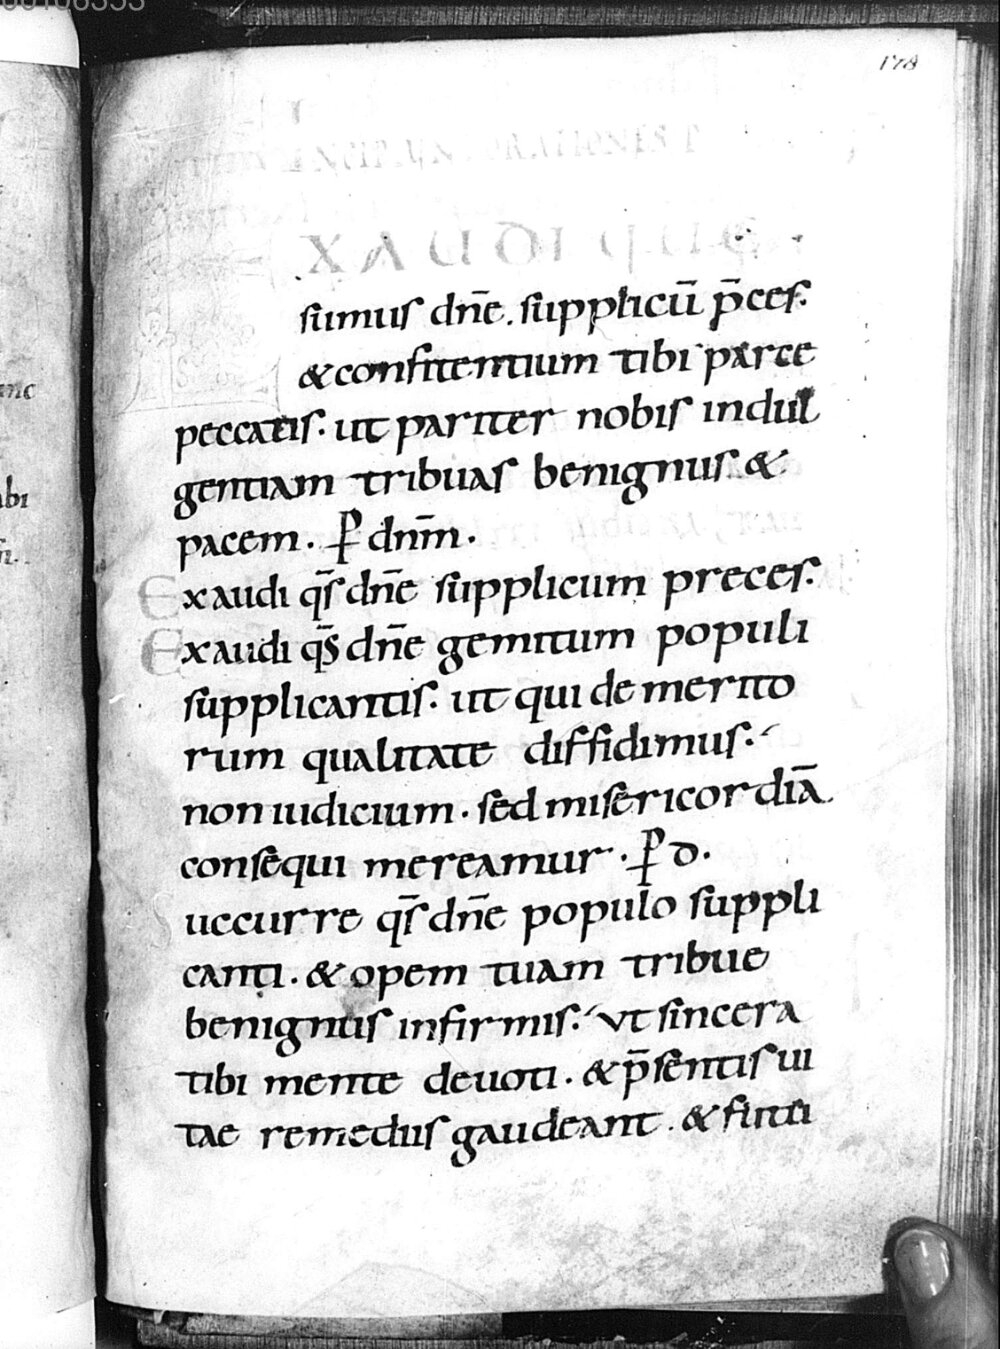 00106353
178
INCIPIUNT ORATIONES P
XAUDI QUE
sumus dn̄e. supplicū p̄ces.
& confitentium tibi parce
peccatis. ut pariter nobis indul
gentiam tribuas benignus. &
pacem. P̄ dnm̄.
Exaudi qs̄ dn̄e supplicum preces.
Exaudi qs̄ dn̄e gemitum populi
supplicantis. ut qui de merito
rum qualitate diffidimus.
non iudicium. sed misericordiā
consequi mereamur. P̄ D.
Succurre qs̄ dn̄e populo suppli
canti. & opem tuam tribue
benignus infirmis. ut sincera
tibi mente deuoti. & p̄sentis ui
tae remediis gaudeant. & futuri
anc
abi